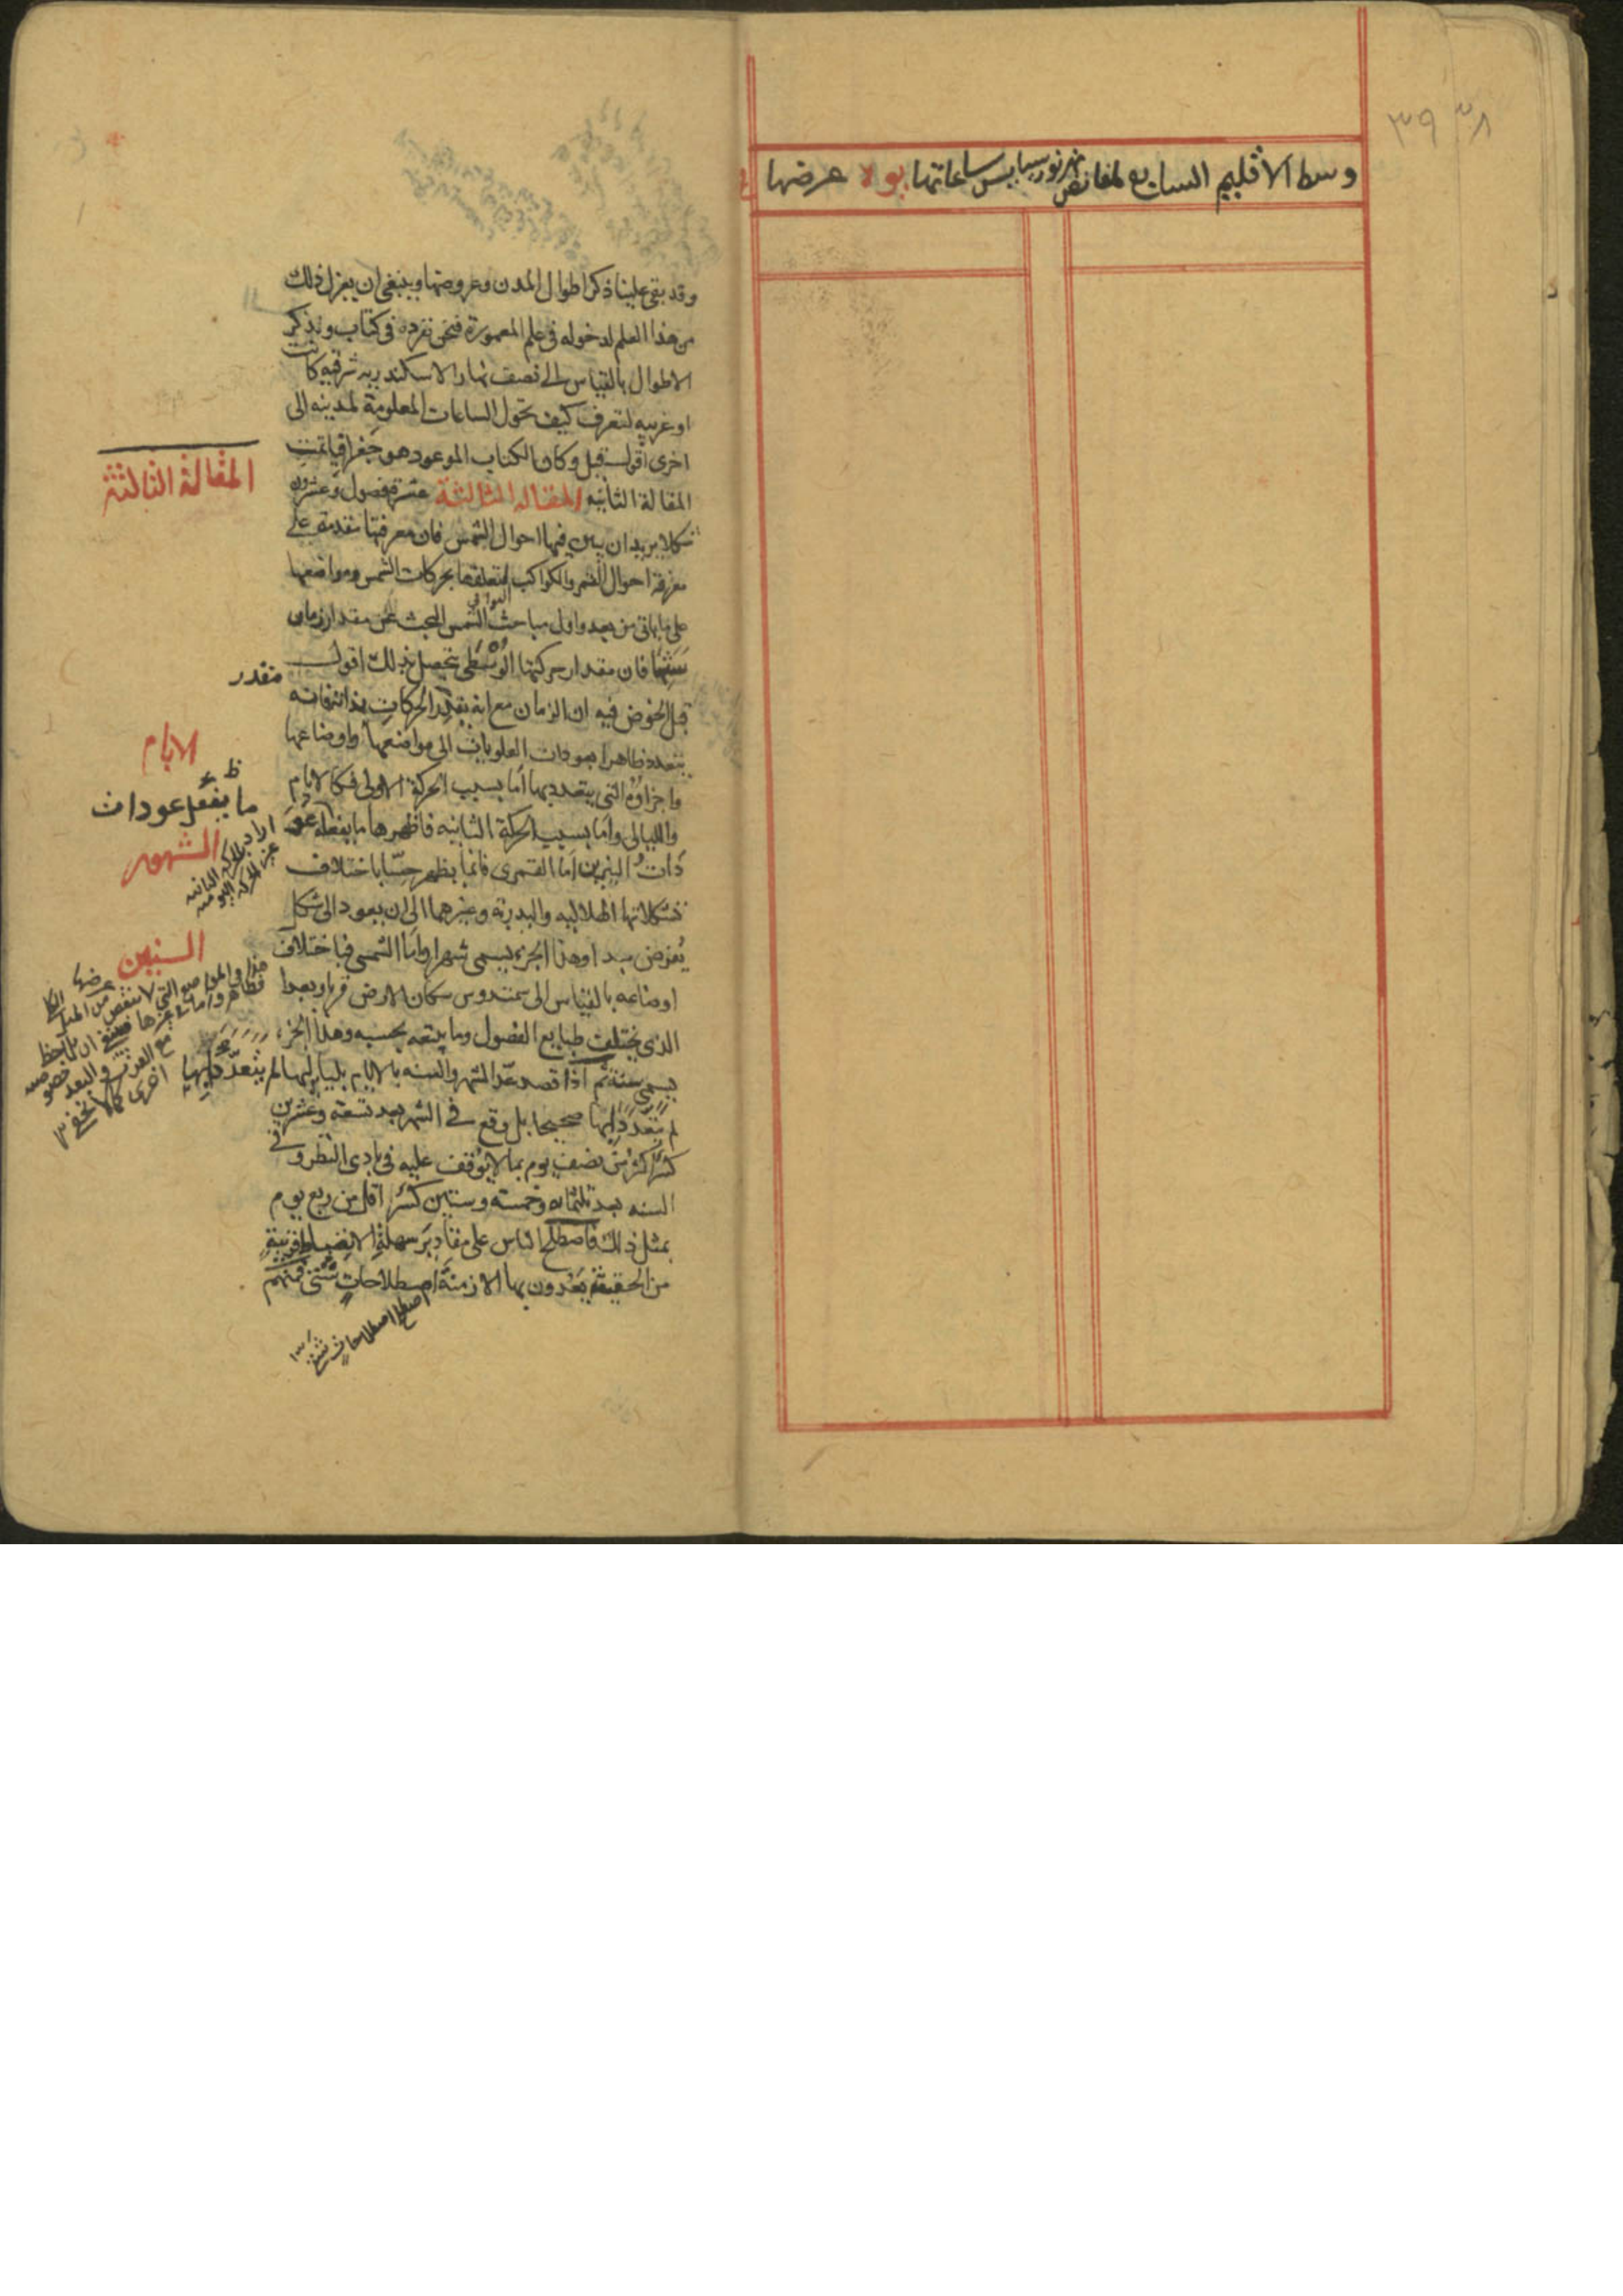 ٣٨ ٣٩
وسط الاقليم السابع لمغانض نهر نورسيا يس ساعاتها يو ه عرضها
وقد بقى علينا ذكر اطوال المدن وعروضها وينبغى ان يعزل ذلك
من هذا العلم لدخوله فى علم المعمورة فنحن نفرده فى كتاب ونذكر
الاطوال بالقياس الى نصف نهار الاسكندريه شرقيه كانت
او غربيه لتعرف كيف تحول الساعات المعلومة لمدينه الى
اخرى اقول قيل وكان الكتاب الموعود هو جغرافيا تمت
المقالة الثانيه المقاله الثالثة عشرة فصول وعشرون
شكلا يريد ان يبين فيها احوال الشمس فان معرفتها متقدمة على
معرفة احوال القمر والكواكب لتعلقها بحركات الشمس ومواضعها
على ما ياتى من بعد واول مباحث الشمس البحث عن مقدار زمان
سنتها فان مقدار حركتها الوسطى يتحصل بذلك اقول
قبل الخوض فيه ان الزمان مع انه يقدر الحركات بذاته فانه
يتعدد ظاهرا بعودات العلويات الى مواضعها واوضاعها
واجزاؤه التى يتعدد بها اما بسبب الحركة الاولى فكالايام
والليالى واما بسبب الحركة الثانيه فاظهرها ما يفعله عو
دات النيرين اما القمرى فانما يظهر حسّا باختلاف
تشكلاتها الهلاليه والبدريه وغيرهما الى ان يعود الى شكل
يُفرض مبدا وهذا الجزء يسمى شهرا واما الشمسى فباختلاف
اوضاعه بالقياس الى سمت روس سكان الارض قربا وبعدا
الذى يختلف طبايع الفصول وما يتبعه بحسبه وهذا الجزء
يسمى سنة ثم اذا قصد عدّ الشهر والسنه بالايام بلياليها لم يتعدّد بها
لم يتعدد بها صحيحا بل وقع فى الشهر بعد تسعة وعشرين
كسرٌ اكثر من نصف يوم بما لا يوقف عليه فى بادى النظر و فى
السنه بعد ثلثمايه وخمسة وستين كسرٌ اقل من ربع يوم
بمثل ذلك فاصطلح الناس على مقادير سهلة الانضباط قريبة
من الحقيقة يَعُدون بها الازمنة اصطلاحات شتى فمنهم
اصطلحوا اصطلاحات شتى
المقالة الثالثة
مقدر
الايام
ظ
ما يفعل عودات
الشهور
اراد بالحركة الثانيه
غير الحركة اليوميه
السنين